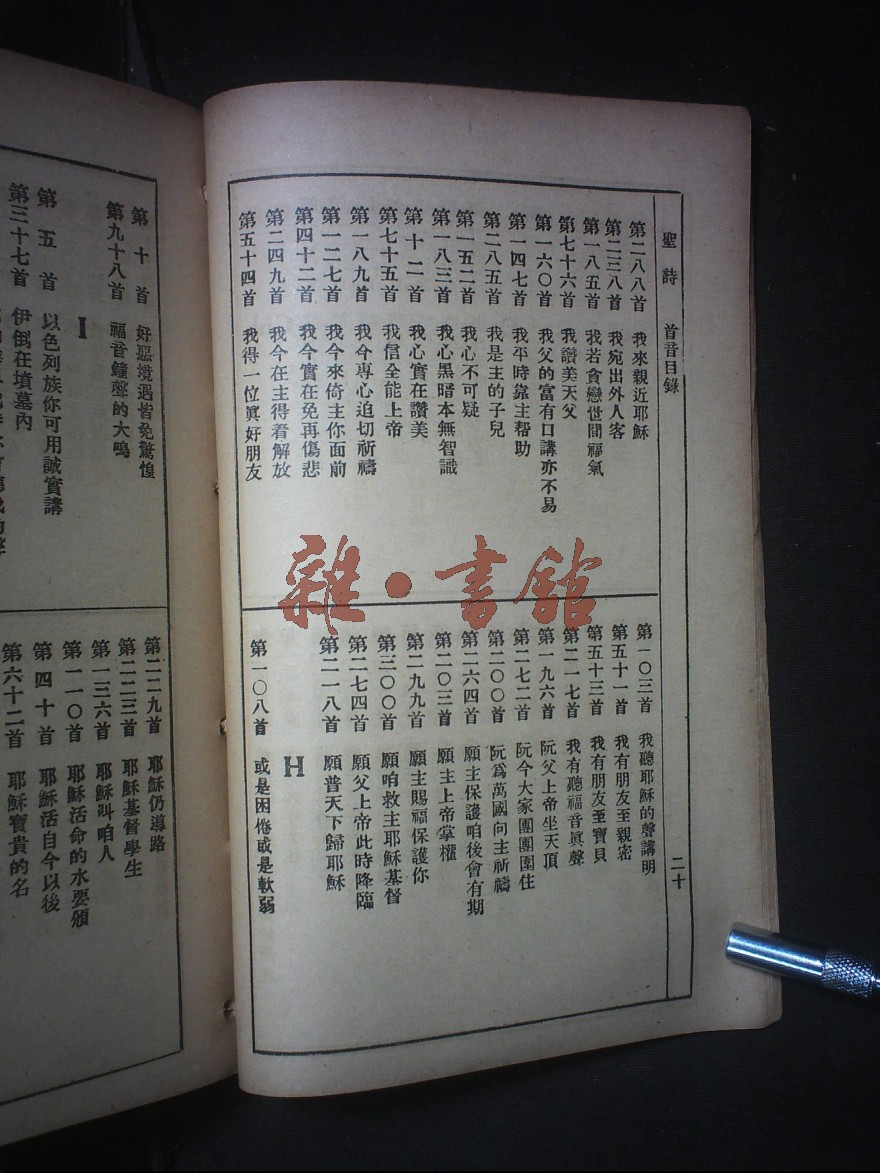 聖詩 首音目錄 二十
第二八八首 我來親近耶穌
第二三八首 我宛出外人客
第一八五首 我若貪戀世間福氣
第七十六首 我讚美天父
第一六〇首 我父的富有口講亦不易
第一四七首 我平時靠主帮助
第二八五首 我是主的子兒
第一五二首 我心不可疑
第一八三首 我心黑暗本無智識
第十二首 我心實在讚美
第七十五首 我信全能上帝
第一八九首 我今專心迫切祈禱
第一二七首 我今來倚主你面前
第四十二首 我今實在免再傷悲
第二四九首 我今在主得着解放
第五十四首 我得一位眞好朋友
第一〇三首 我聽耶穌的聲講明
第五十一首 我有朋友至親密
第五十三首 我有朋友至寶貝
第二一七首 我有聽福音眞聲
第一九六首 阮父上帝坐天頂
第二七二首 阮今大家團團圍住
第二〇〇首 阮爲萬國向主祈禱
第二六四首 願主保護咱後會有期
第二〇三首 願主上帝掌權
第二九九首 願主賜福保護你
第三〇〇首 願咱救主耶穌基督
第二七四首 願父上帝此時降臨
第二一八首 願普天下歸耶穌
H
第一〇八首 或是困倦或是軟弱
雜·書館
第十首 好歹境遇皆免驚惶
第九十八首 福音鐘聲的大鳴
I
第五首 以色列族你可用誠實講
第三十七首 伊倒在墳墓內
第二二九首 耶穌仍導路
第二二三首 耶穌基督學生
第一三六首 耶穌叫咱人
第一一〇首 耶穌活命的水要頒
第四十首 耶穌活自今以後
第六十二首 耶穌寶貴的名